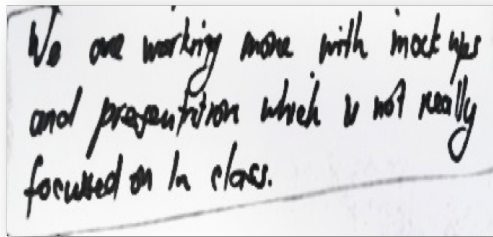 We are working more with mock ups
and presentation which is not really
focused on in class.